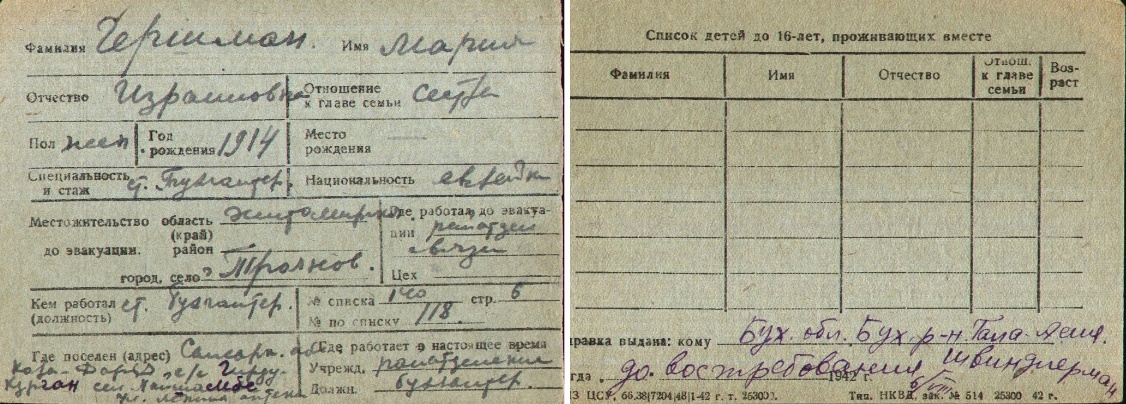 Фамилия Гершман. Имя Мария
Отчество Израиловна Отношение к главе семьи сестра
Пол жен. Год рождения 1914 Место рождения —
Специальность и стаж ст. Бухгалтер. Национальность еврейка
Местожительство до эвакуации. область (край) Житомирск.
район
город, село Троянов.
Где работал до эвакуации райотдел связи
Цех
Кем работал (должность) ст. бухгалтер.
№ списка 140 стр. 6
№ по списку 118.
Где поселен (адрес) Самарк. обл.
Где работает в настоящее время
Учрежд. райотделение
Должн. бухгалтер.
Список детей до 16-лет, проживающих вместе
Фамилия Имя Отчество Отнош. к главе семьи Возраст
правка выдана: кому Бух. обл. Бух. р-н.
гда до востребования Швиндлерман
1942 г.
З ЦСУ. 66.38|7204|48|1-42 г. т. Тип. НКВД, зак. № 514 25300 42 г.